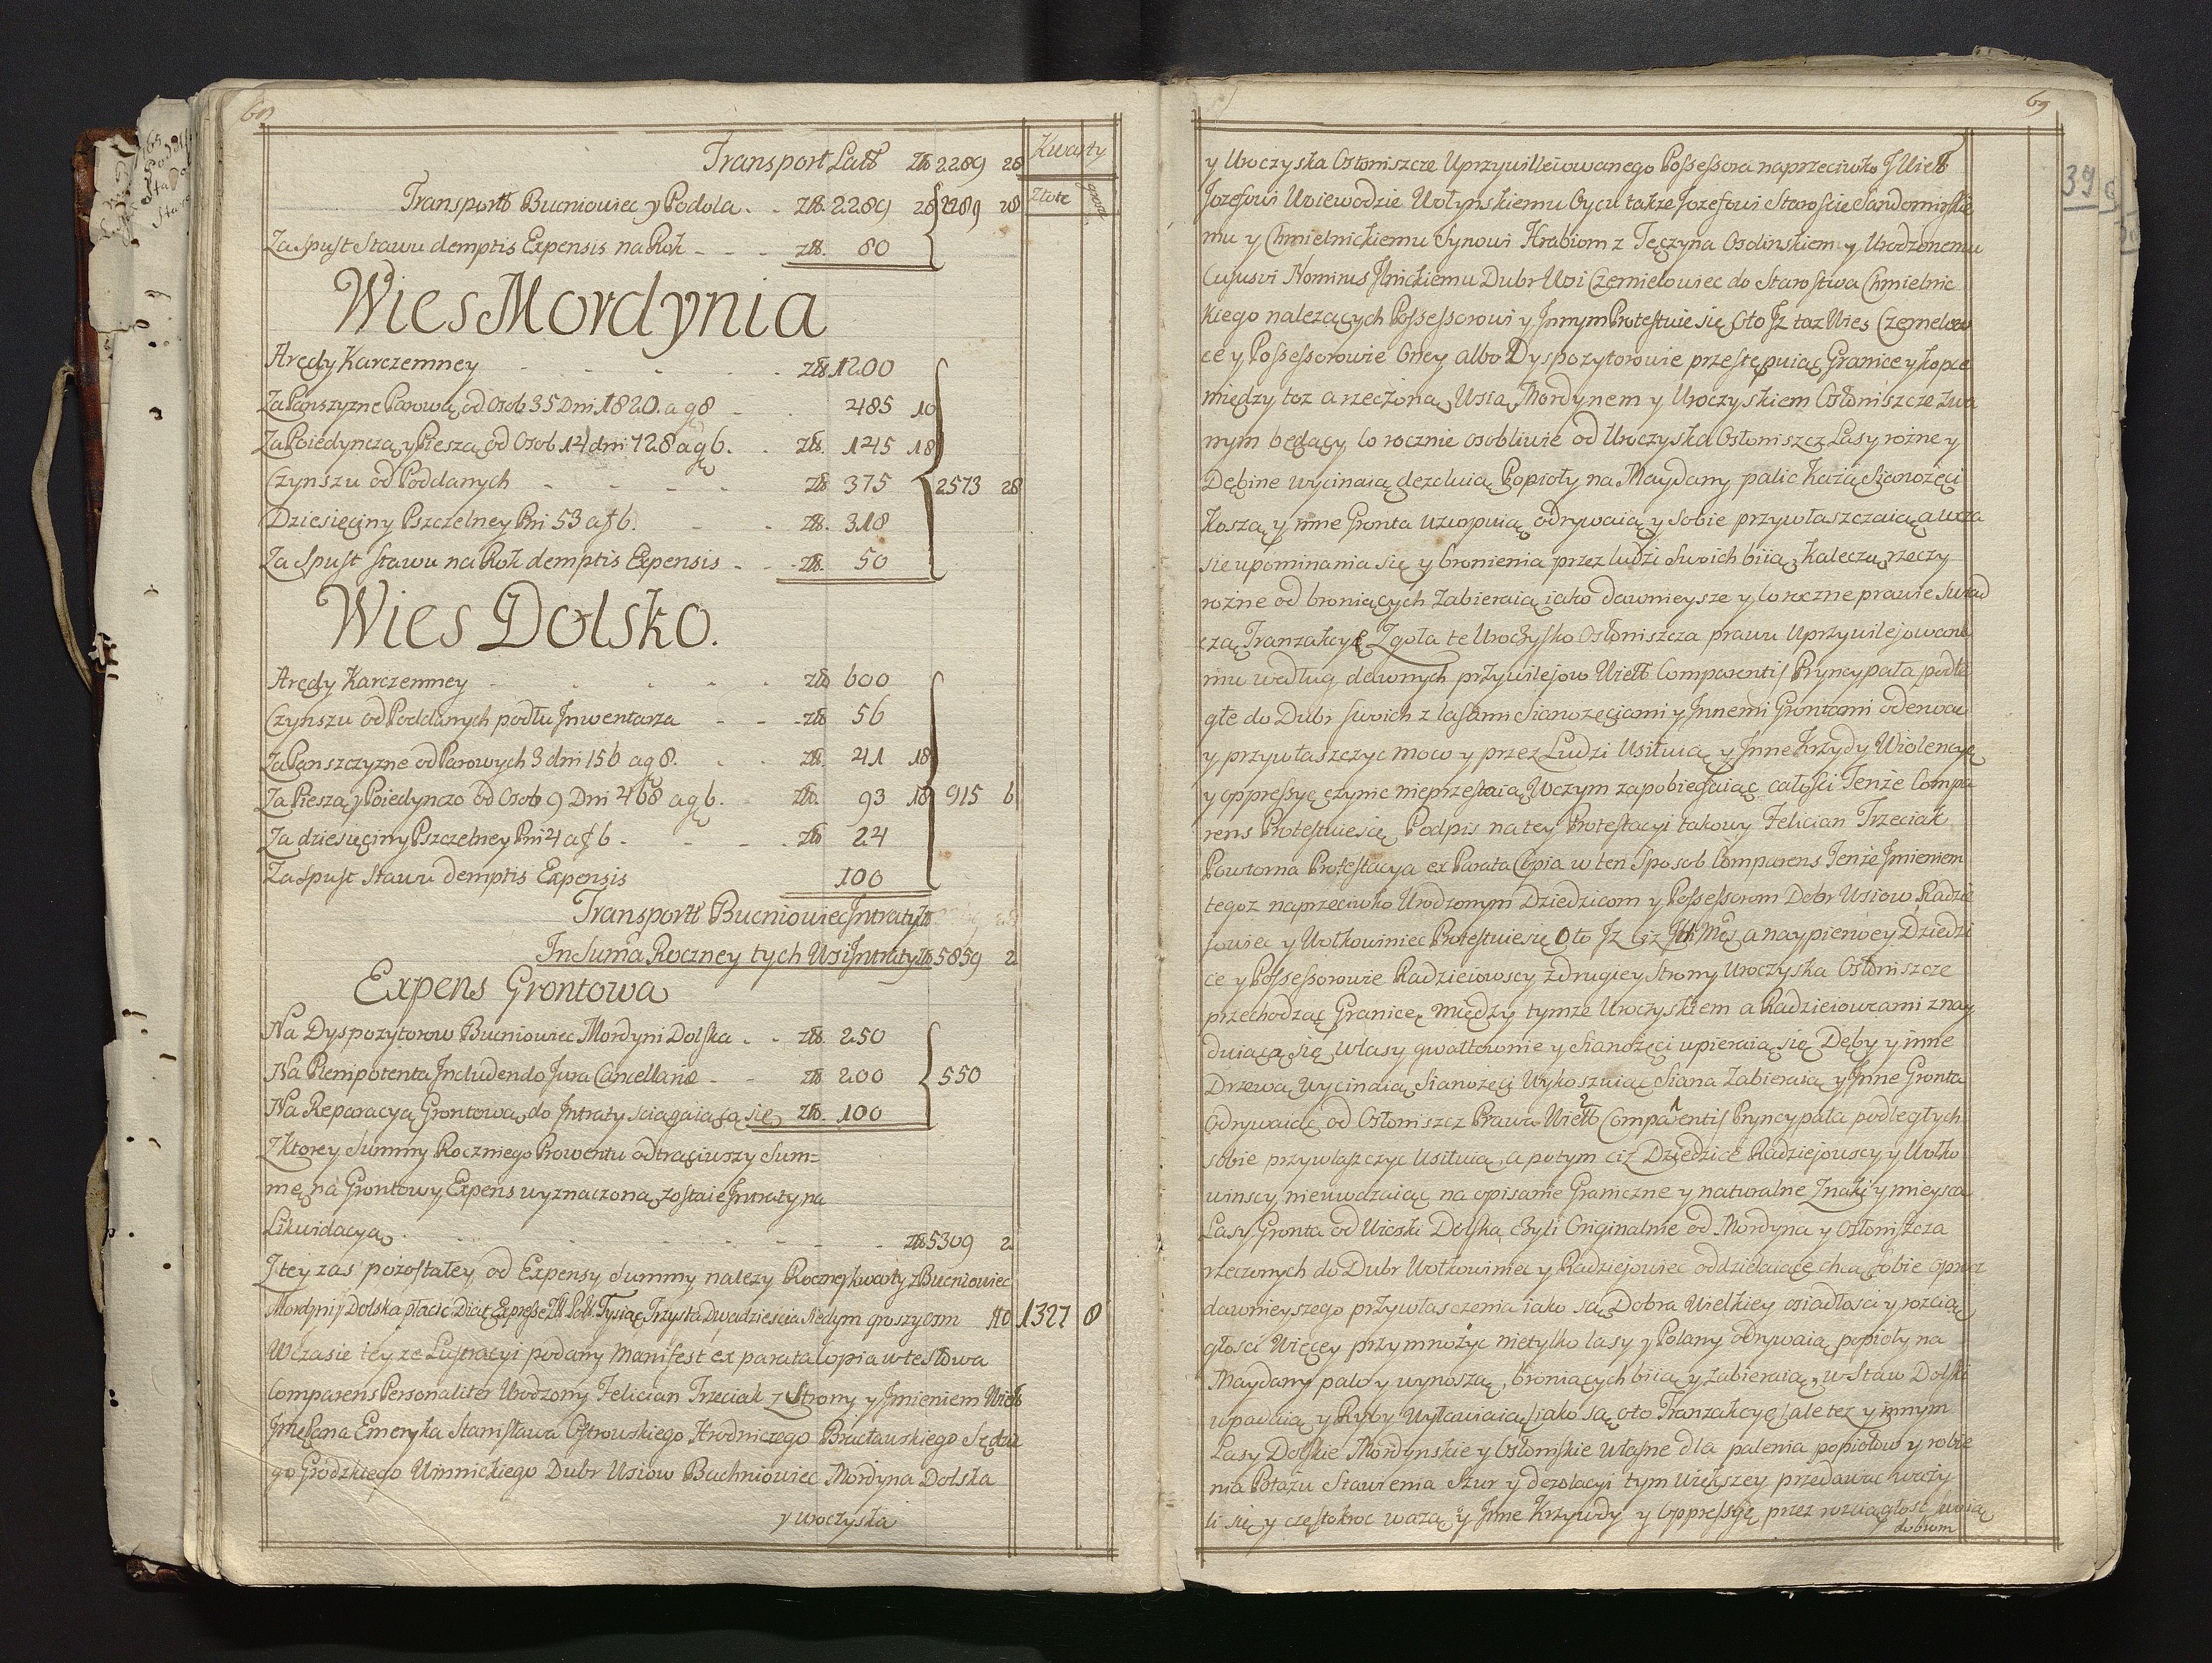 Transport Latt Zło 2289 28
Kwarty
Złote grosz
Transportt Bucniowiec y Podola . . Zło. 2289 28 2289 28
Za Spust Stawu demptis Expensis na Rok - - - zło. 80
Wies Mordynia
Arędy Karczemney - - - - zło 1200
Za Panszyznę Parową od Osob 35 Dni 1820. a g 8 - . 485 10
Za Poiedynczą y Pieszą od Osob 14 dni 728 a g 6. . zło. 145 18
Czynszu od Poddanych - - - - zło 375 2573 28
Dziesięciny Pszczelney Pni 53 a f 6. - . zło. 318
Za Spust Stawu na Rok demptis Expensis - . - zło. 50
Wies Dolsko.
Arędy Karczemney - . . . zło 600
Czynszu od Poddanych podłu Inwentarza - - - zło 56
Za Panszczyznę od Parowych 3 dni 156 a g 8. . . zło. 41 18
Za Pieszą y Poiedynczo od Osob 9 Dni 468 a g 6. zło. 93 18 915 6
Za dziesięciny Pszczelney Pni 4 a f 6 . - - . zło 24
Za Spust Stawu demptis Expensis 100
Transportt Bucniowiec Intraty zło
In Suma Roczney tych Wsi Intraty zło 5859 2
Expens Grontowa
Na Dyspozytorow Bucniowiec Mordyni Dolska . . zło. 250
Na Plenipotenta Includendo Jura Cancellariæ - - zło 200 550
Na Reparacyą Grontową do Intraty sciągaiącą się zło. 100
Z ktorey Summy Rocznego Prowentu odtrąciwszy Sum=
mę na Grontowy Expens wyznaczoną zostaie Intraty na
Likwidacyą . . . . . - - - zło 5309 2
Z tey zas pozostałey od Expensy Summy nalezy Roczney kwarty z Bucniowiec
Mordyni y Dolska płacic Tysiąc Trzysta Dwadziescia Siedym groszy osm No 1327 8
W czasie teyze Lustracyi podany Manifest ex parata copia w te słowa
Comparens Personaliter Urodzony Felician Trzeciak z Strony y Imieniem Wielb
Jmę Pana Emeryka Stanisława Ostrowskiego Hrodniczego Bracławskiego Sędzie
go Grodzkiego Winnickiego Dubr Wsiow Buchniowiec Mordyna Dolska
y uroczyska
69
y Uroczyska Osłoniszcze Uprzywilleiowanego Possessora naprzeciwko J Wielb
Jozefowi Woiewodzie Wołynskiemu Oycu takze Jozefowi Staroscie Sandomirskie
mu y Chmielnickiemu Synowi Hrabiom z Tęczyna Osolinskiem y Urodzonemu
Cujusvi Nominis Ilnickiemu Dubr Wsi Czemielowiec do Starostwa Chmielnic
kiego nalezących Possessorowi y Innym Protestuie się Oto Iz taz Wies Czemelow
ce y Possessorowie Oney albo Dyspozytorowie przestępuiąc Granice y kopce
między toz a rzeczoną Wsią Mordynem y Uroczyskiem Osłoniszcze zwa
nym będący co rocznie osobliwie od Uroczyska Osłoniszcz Lasy rożne y
Dębine wycinaią dezoluią Popioły na Maydany palic Każą Sianożęci
Koszą y inne Gronta uzurpuią odrywaią y Sobie przywłaszczaią a wcza
sie upominania się y bronienia przez ludzi Swoich biią Kaleczą rzeczy
rożne od broniących Zabieraią iako dawnieysze y coroczne prawie Swiad
czą Tranzakcye Zgoła te Uroczysko Osłoniszcza prawu Uprzywilejowane
mu według dawnych przywilejow Wielb Comparentis Pryncypała podle
głe do Dubr swoich z lasami Sianozęciami y Innemi Grontami oderwać
y przywłaszczyc mocą y przez Ludzi Usiłuią y Inne Krzydy Wiolencyę
y oppressyę czynic nieprzestaią Wczym zapobiegaiąc całosci Tenże Compa
rens Protestuiesię Podpis na tey Protestacyi takowy Felician Trzeciak
Powtorna Protestacya ex Parata Copia w ten Sposob Comparens Tenże Imieniem
tegoz naprzeciwko Urodzonym Dziedzicom y Possessorom Dobr Wsiow Radzie
jowiec y Wołkowiniec Protestuiesię Oto Iz Ciz a naypierwey Dziedzi
ce y Possessorowie Radzieiowscy z drugiey Strony Uroczyska Osłoniszcze
przechodząc Granicę między tymze Uroczyskiem a Radzieiowcami znay
duiącą się w lasy gwałtownie y Sianożęci upieraią się Dęby y inne
Drzewa Wycinaią Sianożęci Wykoszuiąc Siana Zabieraią y Inne Gronta
Odrywaiąc od Osłoniszcz Prawu Wielb Comparentis Pryncypała podległych
sobie przywłaszczyc Usiłuią, a potym ciz Dziedzice Radziejowscy y Wołko
winscy nieuważaiąc na opisanie Graniczne y naturalne Znaki y mieysca
Lasy Gronta od Wioski Dolska czyli Originalnie od Mordyna y Osłoniszcza
rzeczonych do Dubr Wołkowiniec y Radziejowiec oddzielaiące chcą Sobie oprocz
dawnieyszego przywłasczenia iako są Dobra Wielkiey osiadłosci y rozcią
głosci Więcey przymnożyc nietylko lasy y Polany odrywaią popioły na
Maydany palą y wynoszą, broniących biią y zabieraią, w Staw Dolski
wpadaią y Ryby Wyławiaią iako są oto Tranzakcyę ale tez y innym
Lasy Dolskie Mordynskie y Osłomskie własne dla palenia popiołow y robie
nia Potażu Stawienia Szur y dezolacyi tym większey przedawac waży
li się y częstokroc ważą y Inne Krzywdy y Oppressyę przez rozciągłosc swoią
dobrom
39